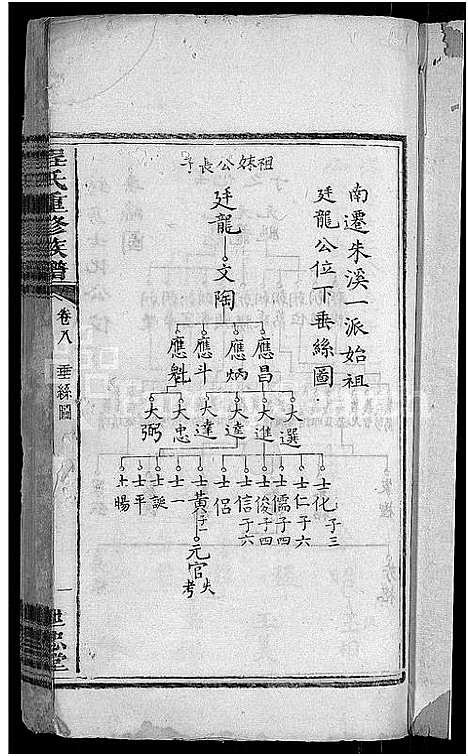 南遷朱溪一派始祖
廷龍公位下垂絲圖
祖妹公長子
廷龍
文陶
應昌
應炳
應斗
應魁
大選
大進
大逵
大達
大忠
大弼
士化子三
士仁子六
士儒子四
士俊子四
士信子六
士侣
士黄子一
士一
士誕
士平
士暘
元官失考
程氏重修族譜
卷八
垂絲圖
一
世忠堂